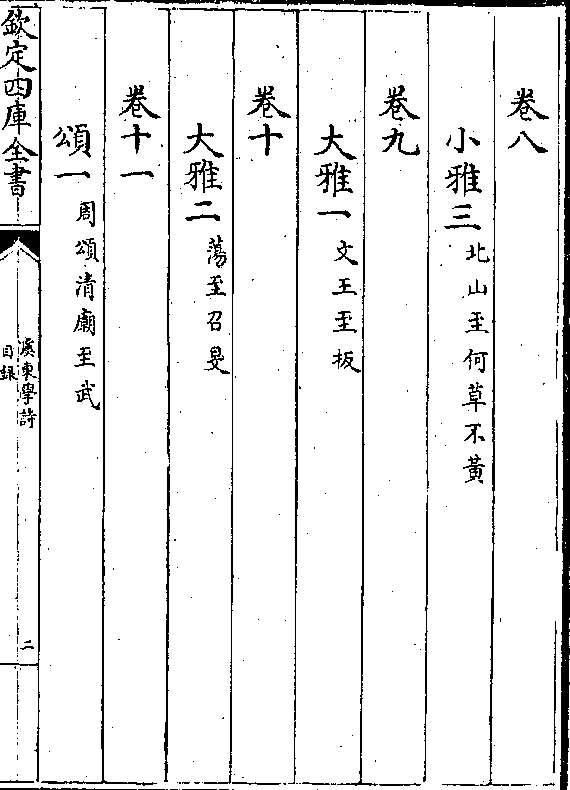 卷八
小雅三 北山至何草不黃
卷九
大雅一 文王至板
卷十
大雅二 蕩至召旻
卷十一
頌一 周頌清廟至武
欽定四庫全書
虞東學詩
目錄
二